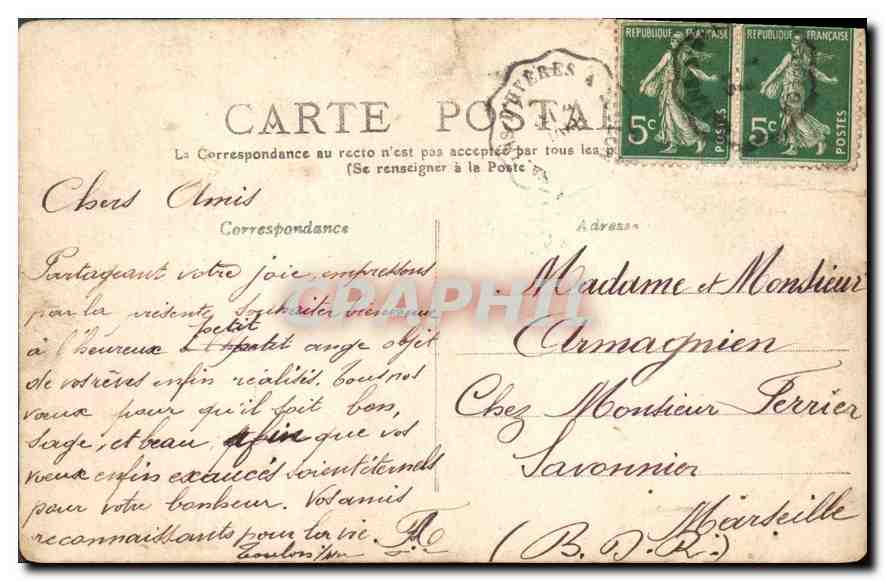 REPUBLIQUE FRANÇAISE REPUBLIQUE FRANÇAISE
5c POSTES 5c POSTES
HYÈRES A
CARTE POSTA
La Correspondance au recto n'est pas acceptée par tous les
(Se renseigner à la Poste
Chers Amis
Correspondance
Partageant votre joie, empressons
par la présente souhaiter bienvenue
à l'heureux petit ange objet
de vos rêves enfin réalisés. Tous nos
vœux pour qu'il soit bon,
sage, et beau, afin que vos
vœux enfin exaucés soient éternels
pour votre bonheur. Vos amis
reconnaissants pour la vie. FA
Toulon
Adresse
Madame et Monsieur
Armagnien
Chez Monsieur Ferrier
Savonnier
Marseille
(B. D. R.)
CPAPHIL